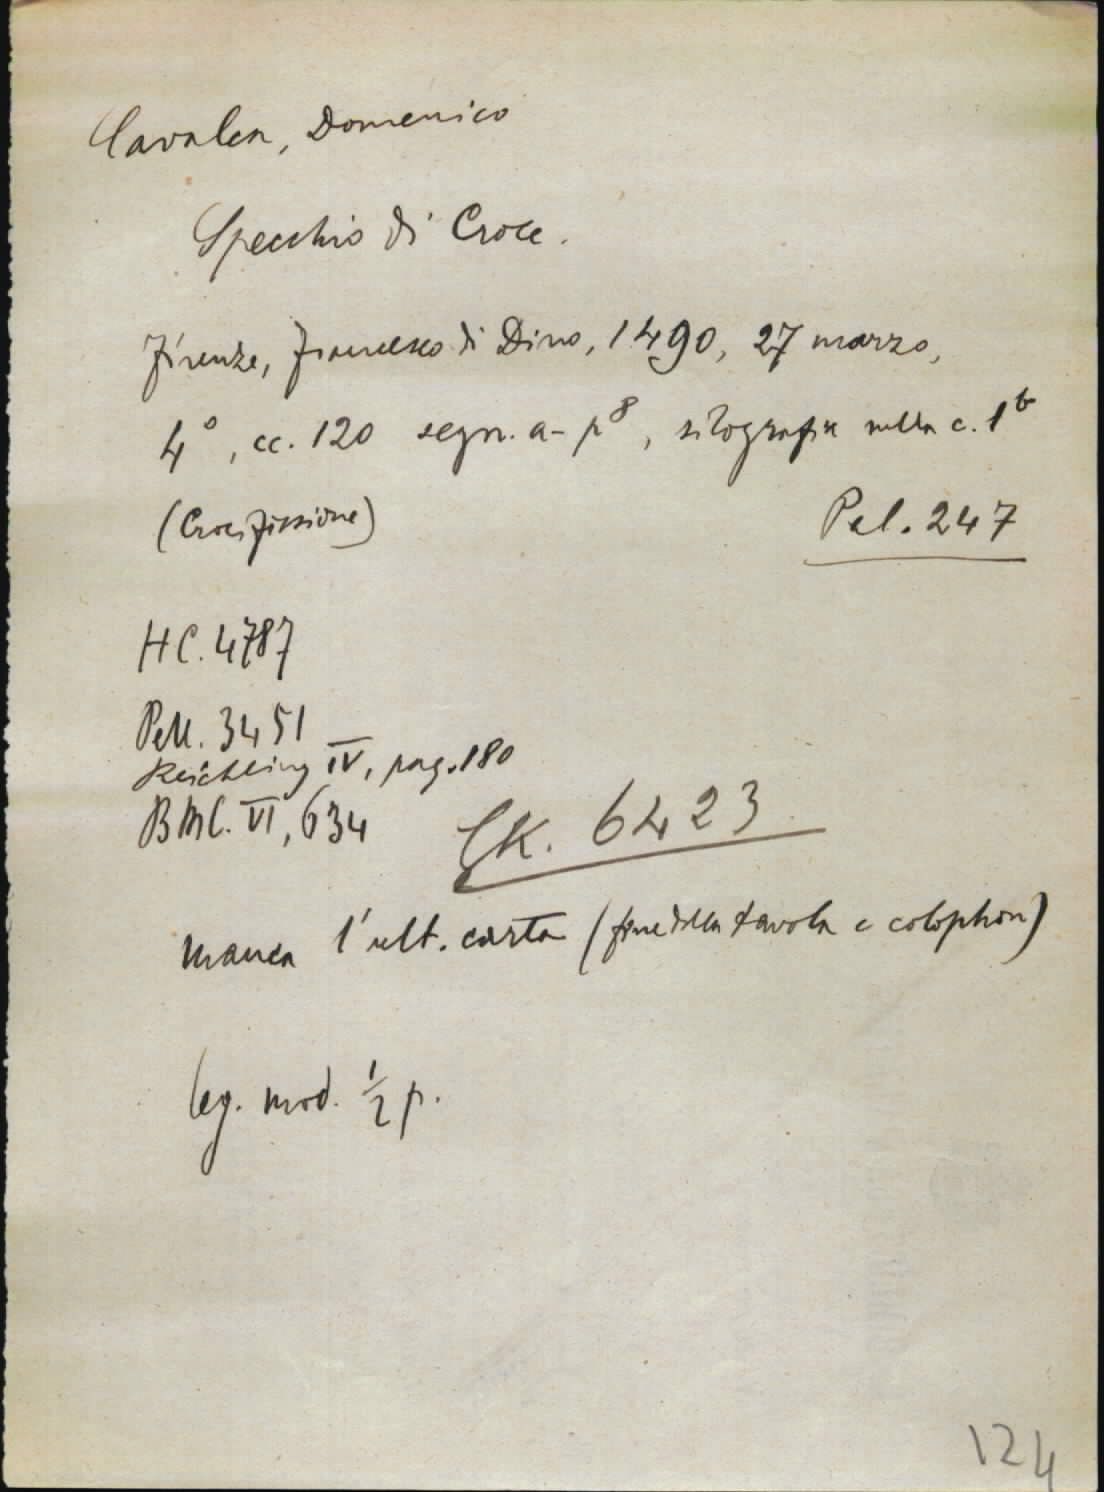 Cavalca, Domenico
Specchio di Croce.
Firenze, Francesco di Dino, 1490, 27 marzo,
4°, cc. 120 segn. a-p⁸, silografia nella c. 1ᵇ
(Crocifissione)
Pal. 247
HC. 4787
Pell. 3451
Reichling IV, pag. 180
BMC. VI, 634
GK. 6423
manca l'ult. carta (fine della tavola e colophon)
leg. mod. ½ p.
124